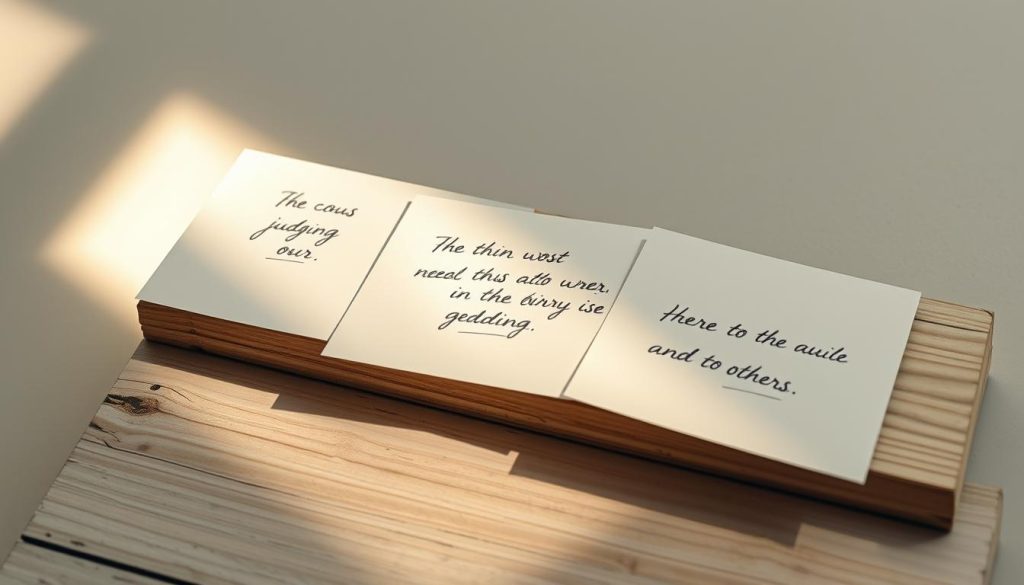 The caus
judging
our.
The thin wost
need this allo wrer.
in the binry ise
gedding.
Here to the auile
and to others.